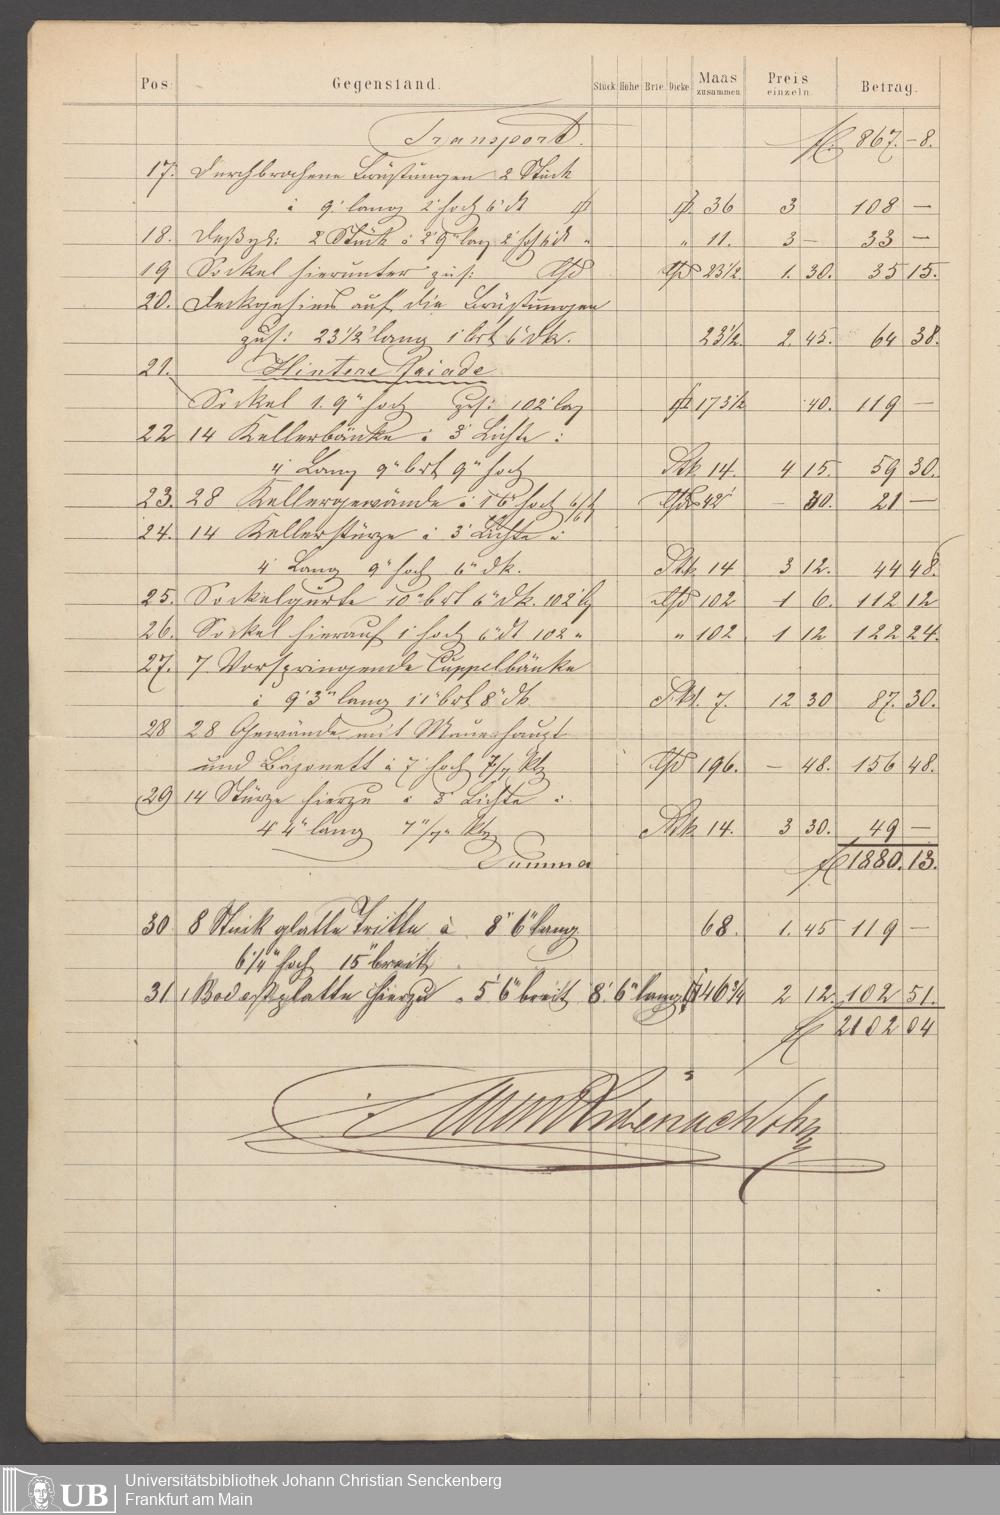 Pos. Gegenstand. Stück Höhe Brte. Dicke Maas zusammen Preis einzeln. Betrag.
Transport. fl. 867. – 8.
17. Durchbrochene Brüstungen 2 Stück
à 9' lang 2' hoch 6" dk 36 3 108 —
18. 2 Stück à 2' 9" lag 2' hoch 6" dk „ „ 11. 3 – 33 —
19 Sockel hierunter zus: lfd lfd 23 1/2 1. 30. 35 15.
20. Deckgesims auf die Brüstungen
zus: 23 1/2' lang 1' brt 6" dk. 23 1/2. 2. 45. 64 38.
21. Hintere Façade
Sockel 1. 9" hoch zus: 102' lag 173 1/2 40. 119 —
22 14 Kellerbänke à 3' Lichte :
4' Lang 9" brt 9" hoch Stk 14. 4 15. 59 30.
23. 28 Kellergewände à 1' 6" hoch 6/6 lfd 42' – 30. 21 —
24. 14 Kellerstürze à 3' Lichte à
4' Lang 9" hoch 6" dk. Stk 14 3 12. 44 48.
25. Sockelgurte 10" brt 6" dk. 102' lg lfd 102 1 6. 112 12
26. Sockel hierauf 1' hoch 6" dk 102 „ „ 102 1 12 122 24.
27. 7 Vorspringende Cuppelbänke
à 9' 3" lang 1' 1" brt 8" dk Stk. 7. 12 30 87. 30.
28 28 Gewände mit
und Bajonett à 7' hoch 7/7 lfd 196. – 48. 156 48.
29 14 Stürze hierzu à 3' Lichte à
4' 4" lang 7"/7" Stk 14. 3 30. 49 —
Summa fl 1880. 13.
30 8 Stück glatte Tritte à 8' 6" lang 68. 1. 45 119 —
6 1/4" hoch 15" breit
31. 1 Podestplatte hierzu „ 5' 6" breit 8' 6" lang 46 3/4 2 12. 102 51.
fl 2102 04
UB Universitätsbibliothek Johann Christian Senckenberg
Frankfurt am Main